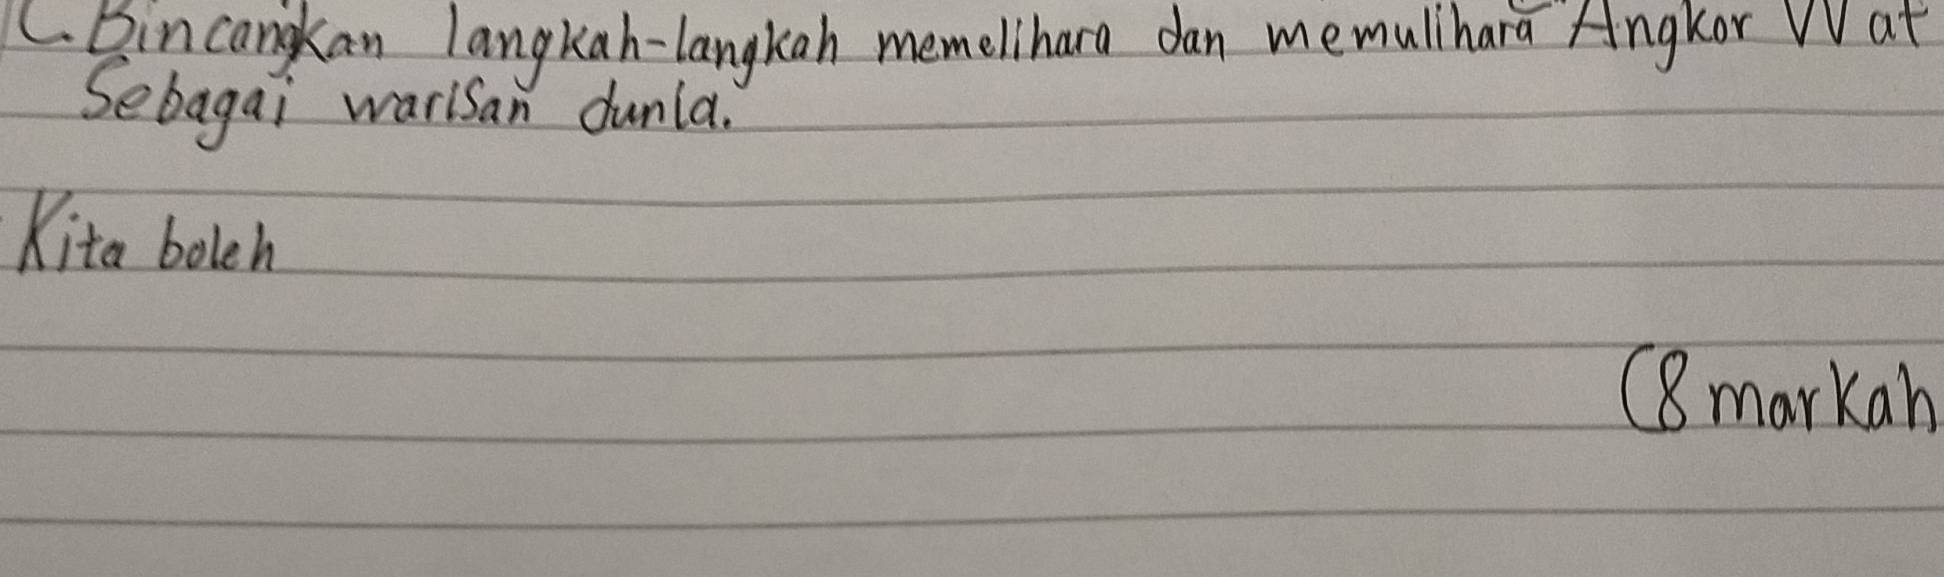 C. Bincangkan langkah-langkah memelihara dan memulihara Angkor Wat
Sebagai warisan dunia.
Kita boleh
(8 markah